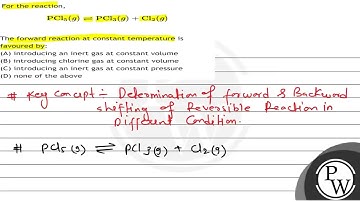 For the reaction,
PCl₅(g) ⇌ PCl₃(g) + Cl₂(g)
The forward reaction at constant temperature is
favoured by:
(A) introducing an inert gas at constant volume
(B) introducing chlorine gas at constant volume
(C) introducing an inert gas at constant pressure
(D) none of the above
# Key Concept :- Determination of forward & Backward
shifting of Reversible Reaction in
Different Condition.
# PCl₅(g) ⇌ PCl₃(g) + Cl₂(g)
P
W